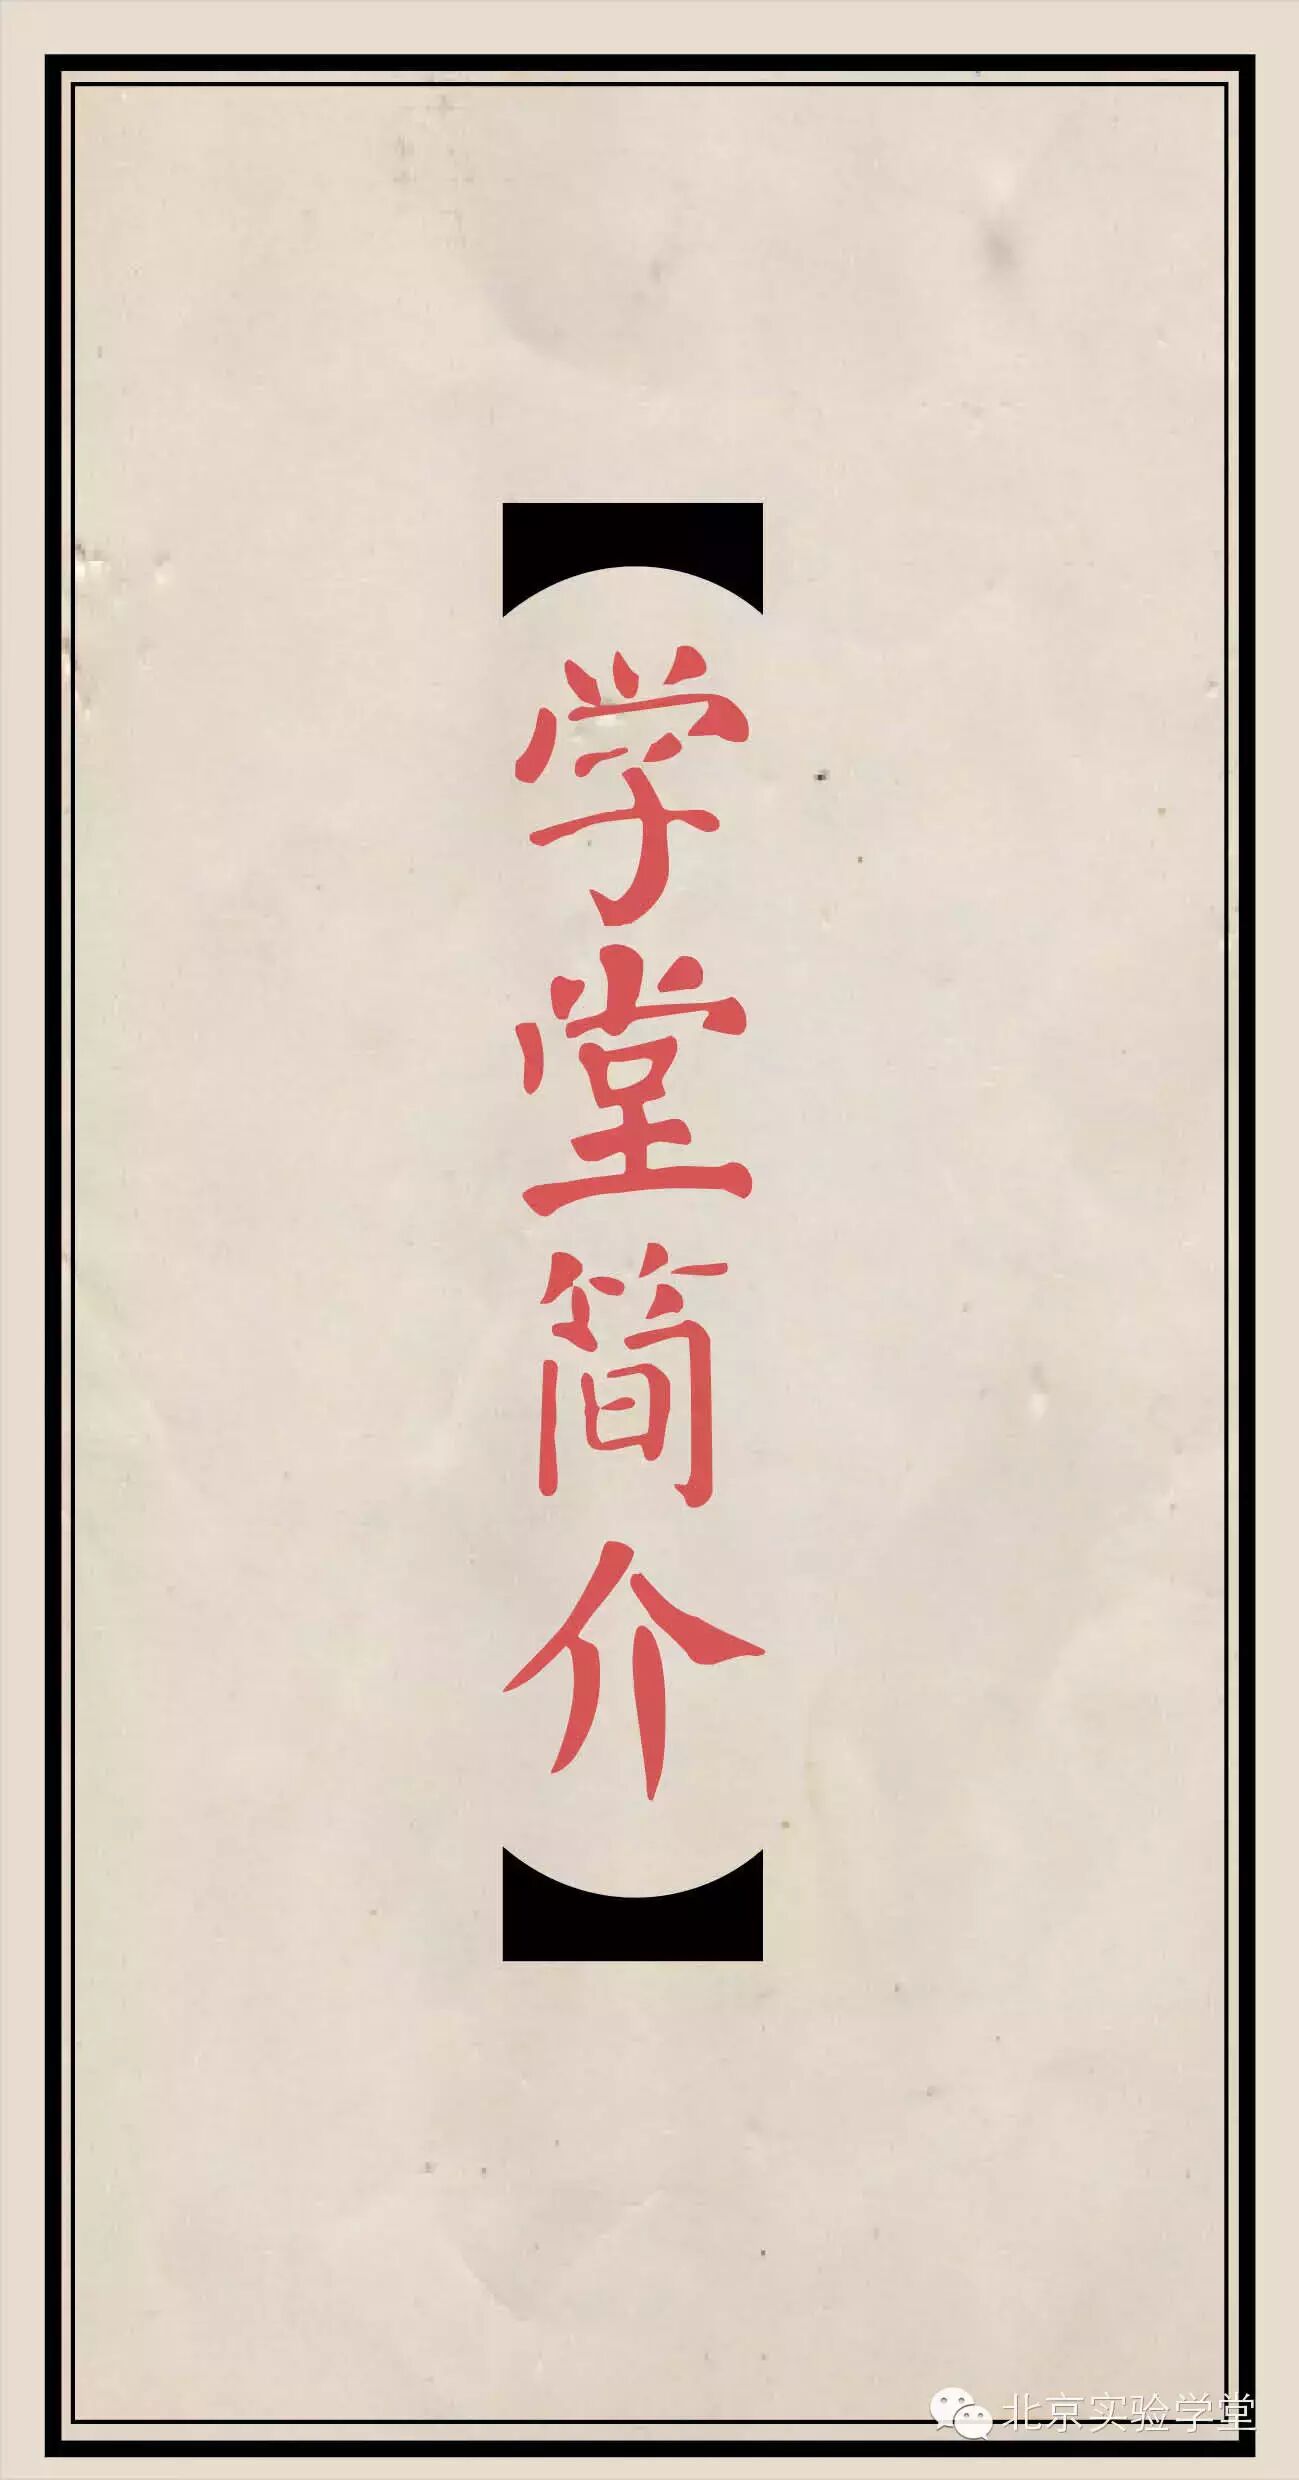 【学堂简介】
北京实验学堂